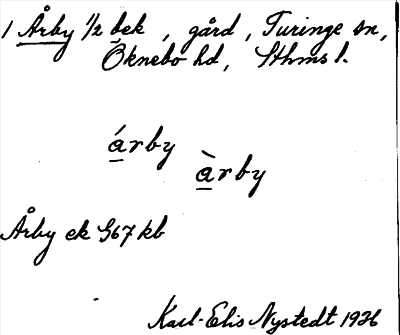 1 Årby ½ bek , gård , Turinge sn,
Öknebo hd, Sthms l.
árby
àrby
Årby ek 967 kb
Karl-Elis Nystedt 1926